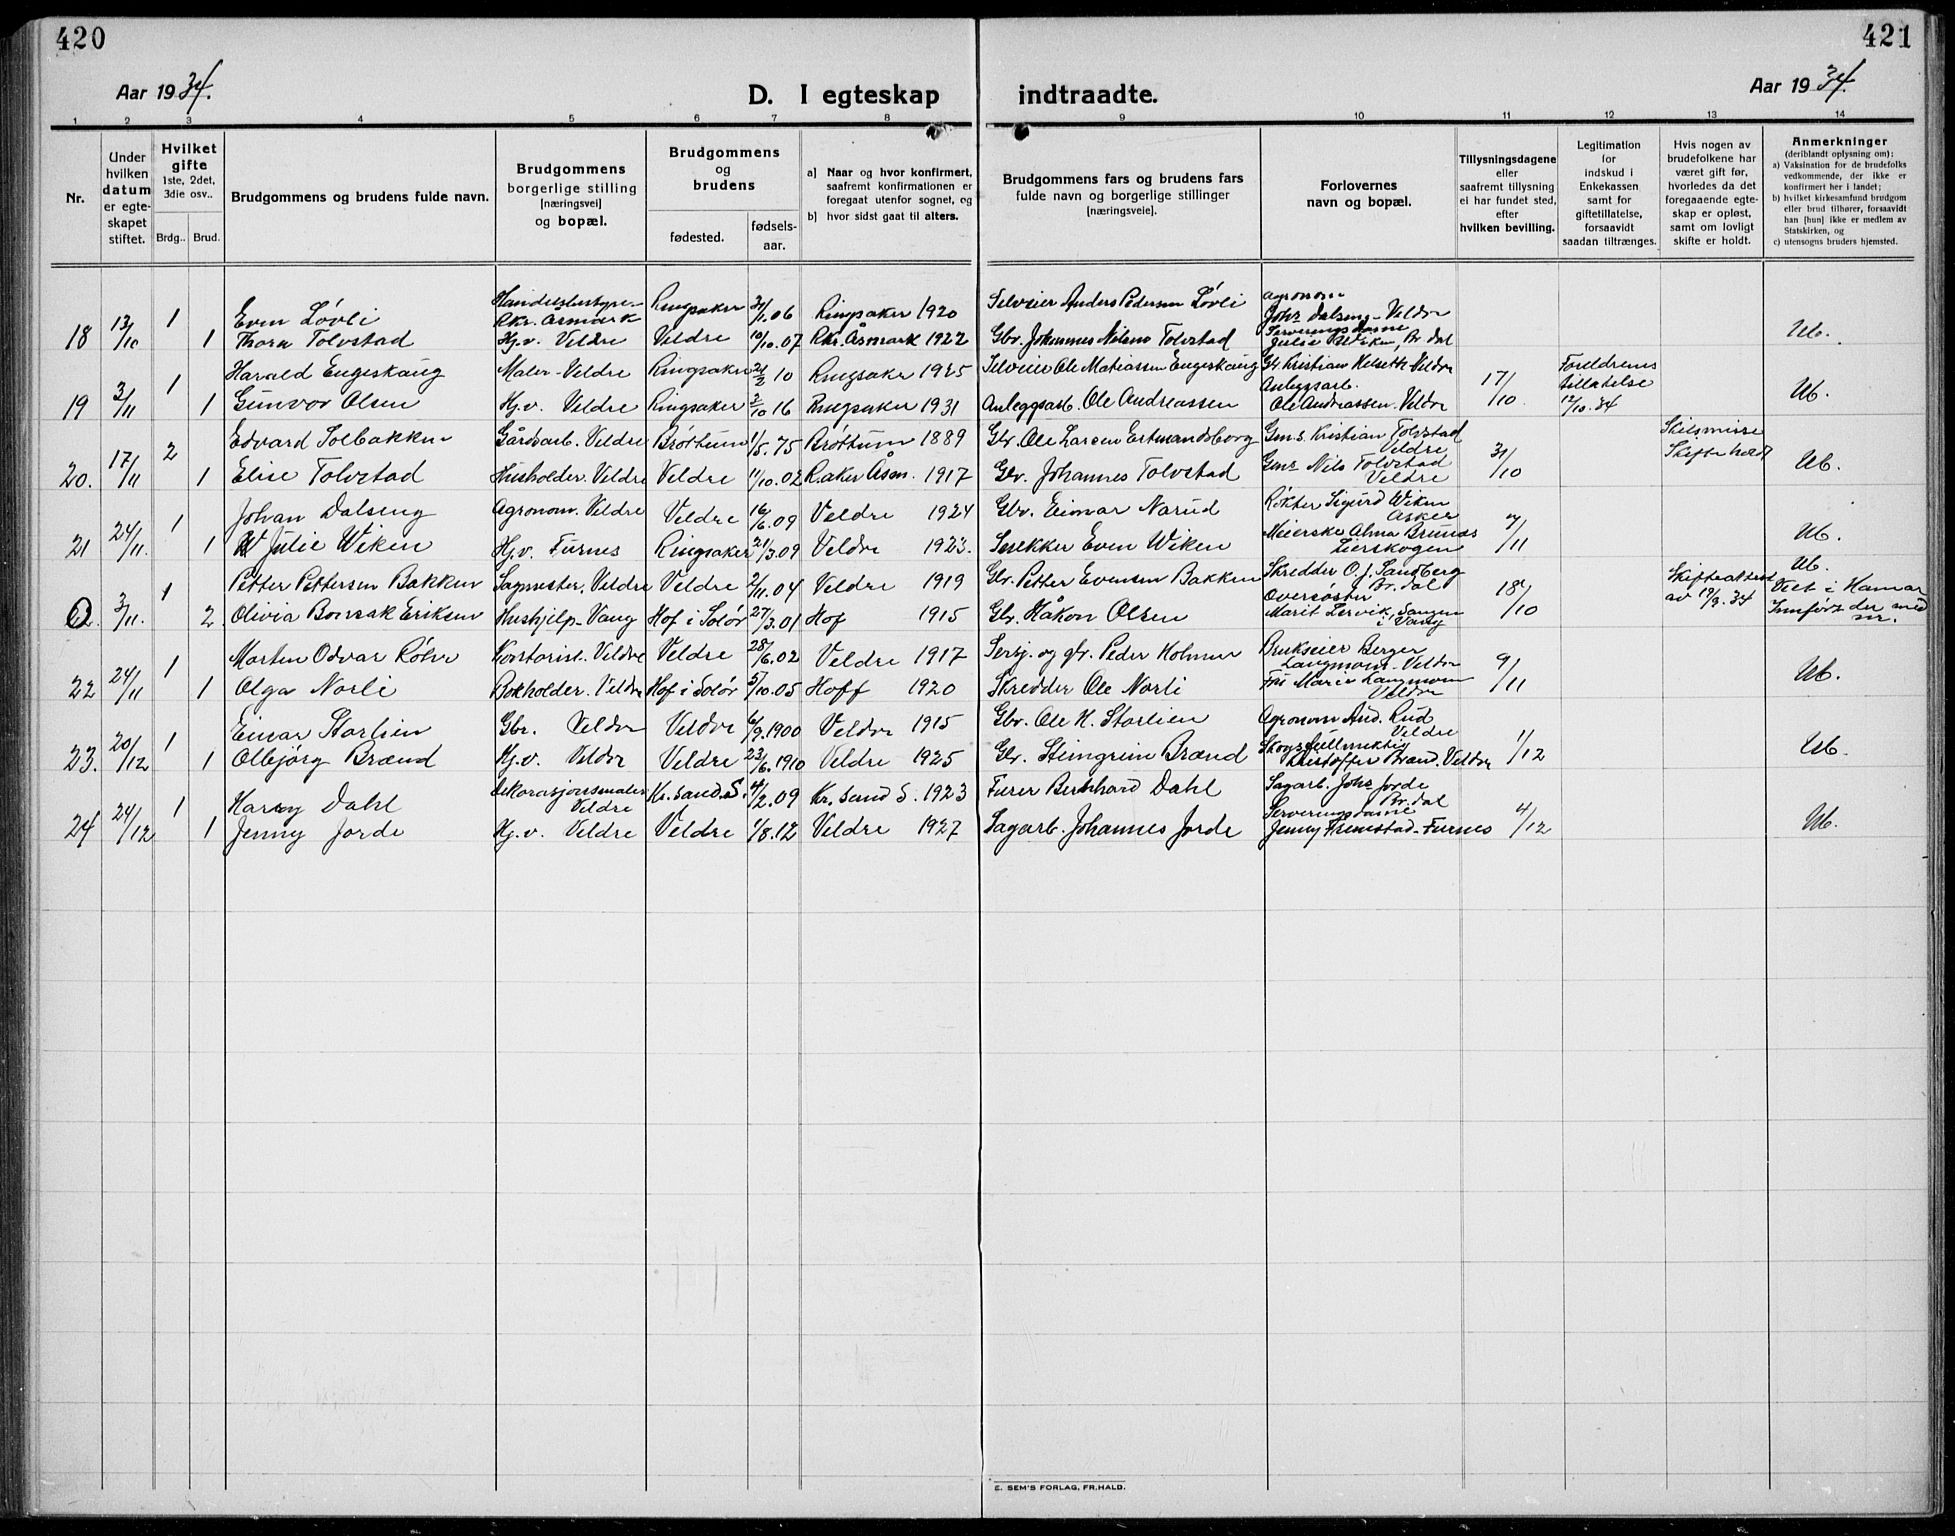 420
421
Aar 1934.
D. I egteskap indtraadte.
Aar 1934.
1 2 3 4 5 6 7 8 9 10 11 12 13 14
Nr.
Under hvilken datum er egteskapet stiftet.
Hvilket gifte 1ste, 2det, 3die osv..
Brdg.. Brud.
Brudgommens og brudens fulde navn.
Brudgommens borgerlige stilling [næringsvei] og bopæl.
Brudgommens og brudens
fødested.
fødselsaar.
a) Naar og hvor konfirmert, saafremt konfirmationen er foregaat utenfor sognet, og
b) hvor sidst gaat til alters.
Brudgommens fars og brudens fars fulde navn og borgerlige stillinger [næringsveie].
Forlovernes navn og bopæl.
Tillysningsdagene eller saafremt tillysning ei har fundet sted, efter hvilken bevilling.
Legitimation for indskud i Enkekassen samt for giftetillatelse, forsaavidt saadan tiltrænges.
Hvis nogen av brudefolkene har været gift før, hvorledes da det foregaaende egteskap er opløst, samt om lovligt skifte er holdt.
Anmerkninger (deriblandt oplysning om): a) Vaksination for de brudefolks vedkommende, der ikke er konfirmert her i landet; b) hvilket kirkesamfund brudgom eller brud tilhører, forsaavidt han [hun] ikke er medlem av Statskirken, og c) utensogns bruders hjemsted.
18 13/10 1 Even Løvli Handelsbestyrer Rkr. Åsmark Ringsaker 31/1.06 Ringsaker 1920 Selveier Anders Pedersen Løvli Agronom Johs Dalseng - Veldre
1 Thora Tolvstad Hj.v. Veldre Veldre 10/10.07 Rkr. Åsmark 1922 Gbr. Johannes Nilsen Tolvstad Serveringsdame Julie Wiken, Br.dal Ub.
19 3/11 1 Harald Engeskaug Maler - Veldre Ringsaker 21/2 10 Ringsaker 1925 Selveier Ole Matiassen Engeskaug Gbr Kristian Helseth - Veldre 17/10 Foreldrenes tillatelse 12/10.34
1 Gunvor Olsen Hj.v. Veldre Ringsaker 2/10 16 Ringsaker 1931 Anleggsarb. Ole Andreassen Anleggsarb. Ole Andreassen. Veldre Ub.
20. 17/11 2 Edvard Solbakken Gårdsarb. Veldre Brøttum 1/5.75 Brøttum 1889 Gbr. Ole Larsen Ertmandsborg Gms. Kristian Tolvstad Veldre 31/10 Skilsmisse Skifte holdt
1 Elise Tolvstad Husholder. Veldre Veldre 11/10.02 R.aker Åsm. 1917 Gbr. Johannes Tolvstad Gms Nils Tolvstad Veldre Ub.
21 24/11. 1 Johan Dalseng Agronom. Veldre Veldre 16/6.09 Veldre 1924 Gbr. Einar Narud Røkter Sigurd Wiken Asker 7/11
1 Julie Wiken Hj.v. Furnes Ringsaker 21/3.09 Veldre 1923. Snekker Even Wiken Meierske Alma Brunæs Lierskogen Ub.
12. 3/11. 1 Petter Pettersen Bakken Sagmester. Veldre Veldre 2/11.04 Veldre 1919 Gbr. Petter Evensen Bakken Skredder O. J. Sandberg Br.dal 18/10 Skifteattest av 19/9.34 Ub. Viet i Hamar
2. Olivia Bonsak Eriksen Hushjelp - Vang Hof i Solør 27/3.01 Hof 1915 Gbr. Håkon Olsen Oversøster Marit Lervik, Sangen i Vang Innført der med nr.
22 24/11 1 Morten Odvar Röhr Kontorist. Veldre Veldre 28/6.02 Veldre 1917 Sersj. og gbr. Peder Holmen Brukseier Berger Langmoen - Veldre 9/11
1 Olga Norli Bokholder. Veldre Hof i Solør 5/10.05 Hoff 1920 Skredder Ole Norli Fru Marie Langmoen Veldre Ub.
23. 20/12 1 Einar Storlien Gbr. Veldre Veldre 6/9.1900 Veldre 1915 Gbr. Ole H. Storlien Agronom And. Rud Veldre 1/12
1 Olbjørg Brænd Hj.v. Veldre Veldre 23/6.1910 Veldre 1925 Gbr. Steingrim Brænd Skogsfullmektig Kristoffer Brænd. Veldre Ub.
24 24/12 1 Harry Dahl Dekorasjonsmaler Veldre Kr.sand. S. 4/2.09 Kr. Sand S. 1923 Furer Bernhard Dahl Sagarb. Johs Jorde Br.dal 4/12
1 Jenny Jorde Hj.v. Veldre Veldre 1/8.12 Veldre 1927 Sagarb. Johannes Jorde Serveringsdame Jenny Fremstad - Furnes Ub.
E. SEM'S FORLAG, FR.HALD.